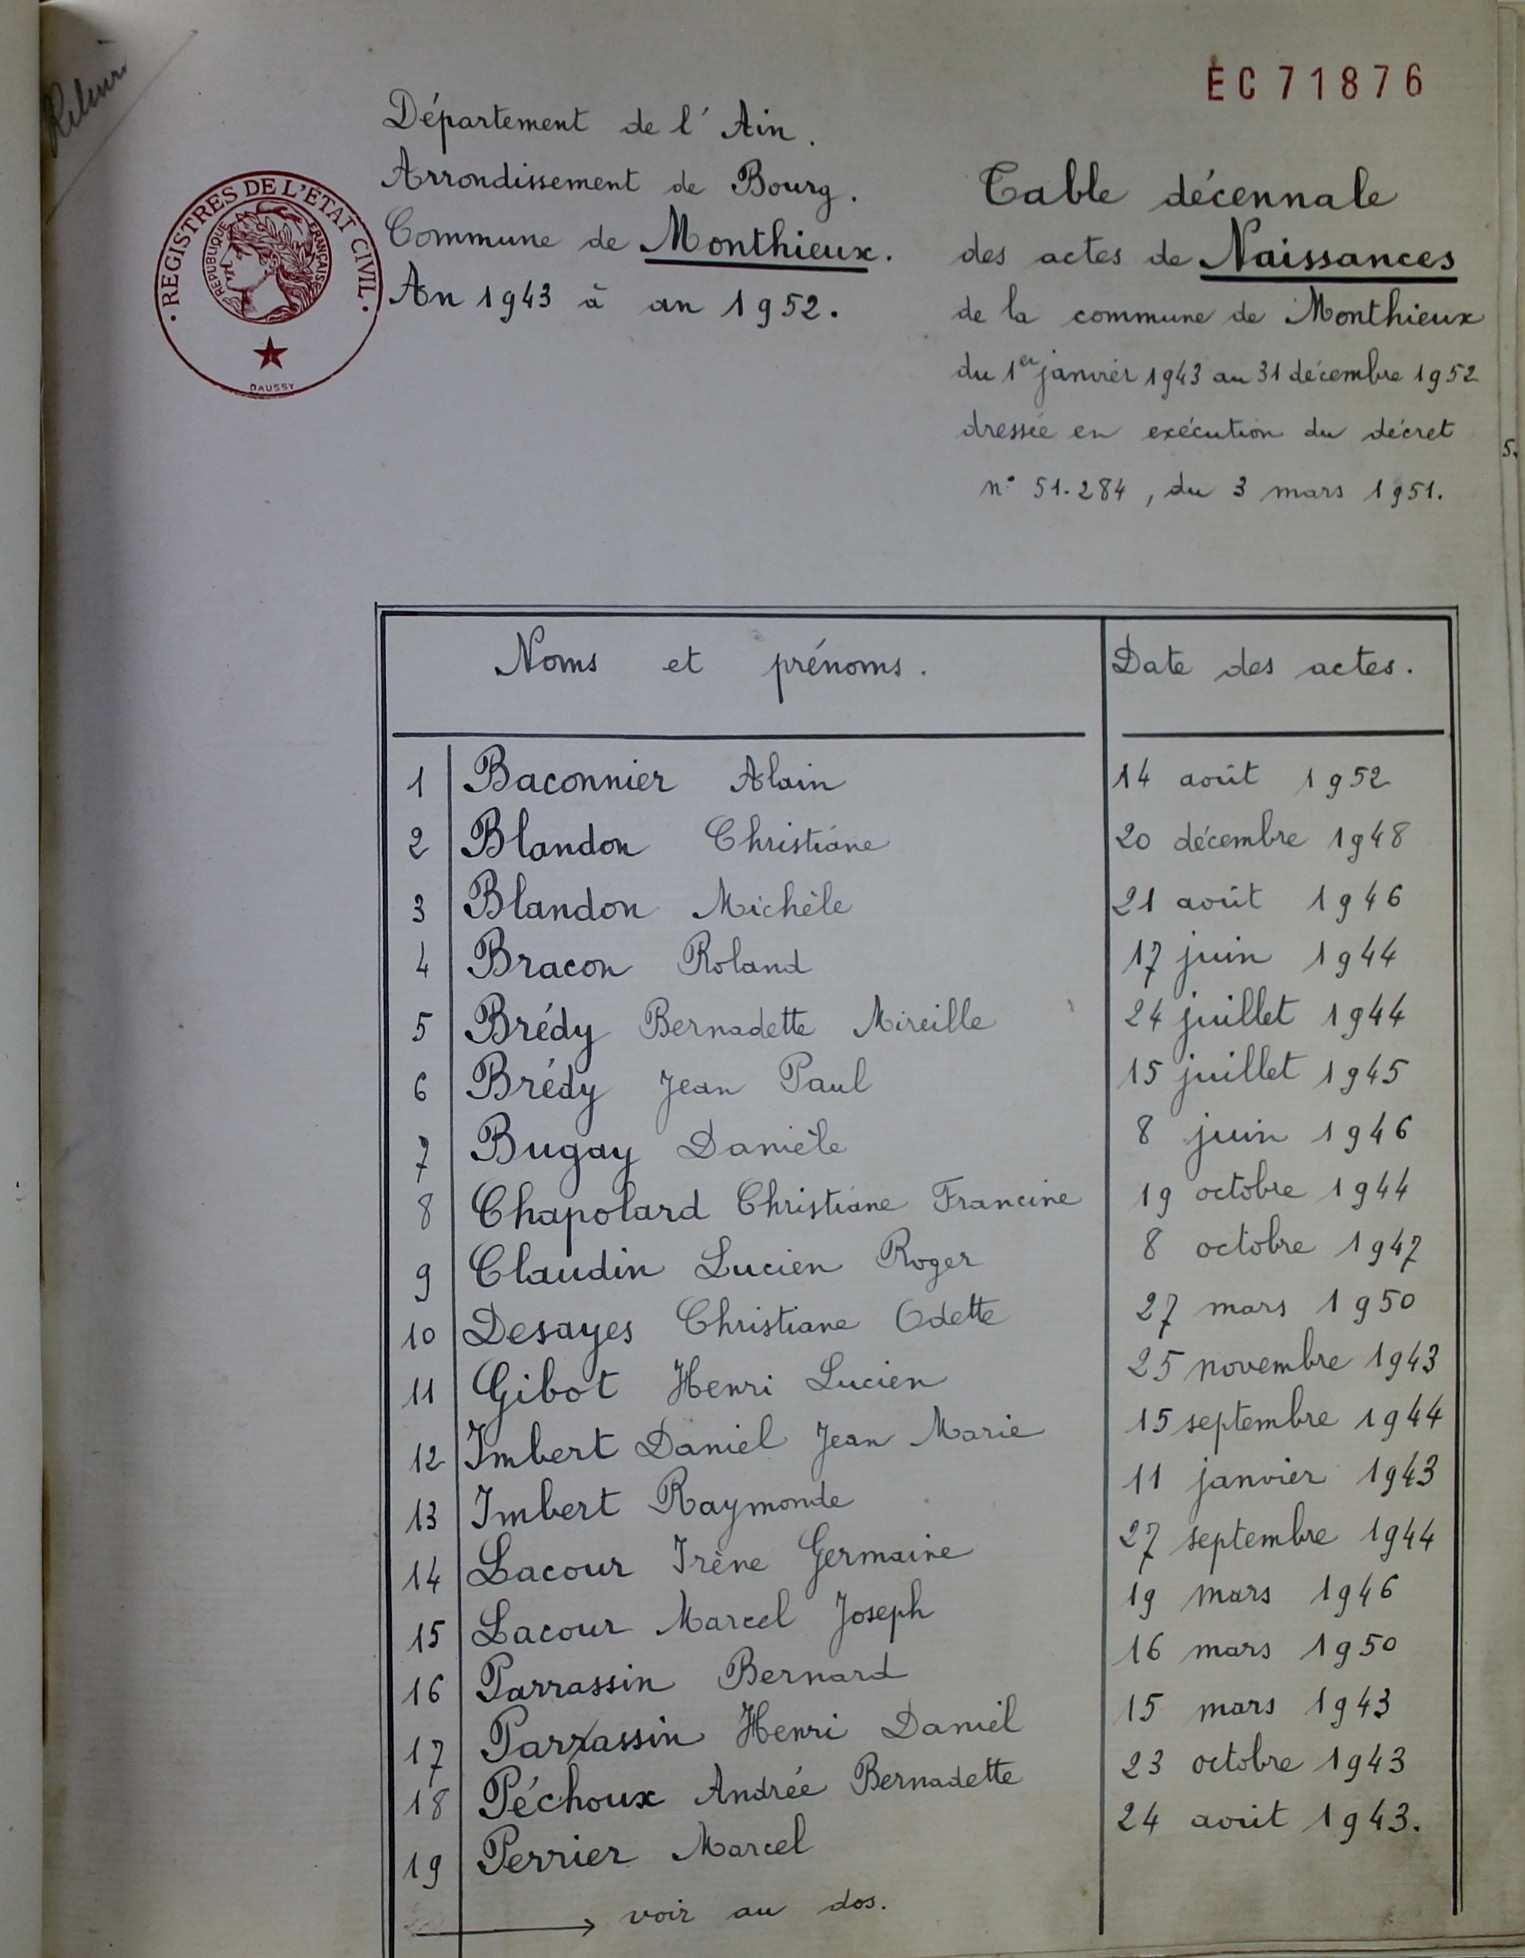 EC 71876
Département de l'Ain.
Arrondissement de Bourg.
Commune de Monthieux.
An 1943 à an 1952.
REGISTRES DE L'ETAT CIVIL
REPUBLIQUE FRANÇAISE
DAUSSY
Table décennale
des actes de Naissances
de la commune de Monthieux
du 1er janvier 1943 au 31 décembre 1952
dressée en exécution du décret
n° 51.284, du 3 mars 1951.
5.
Noms et prénoms. Date des actes.
1 Baconnier Alain 14 août 1952
2 Blandon Christiane 20 décembre 1948
3 Blandon Michèle 21 août 1946
4 Bracon Roland 17 juin 1944
5 Brédy Bernadette Mireille 24 juillet 1944
6 Brédy Jean Paul 15 juillet 1945
7 Bugay Danièle 8 juin 1946
8 Chapolard Christiane Francine 19 octobre 1944
9 Claudin Lucien Roger 8 octobre 1947
10 Desayes Christiane Odette 27 mars 1950
11 Gibot Henri Lucien 25 novembre 1943
12 Imbert Daniel Jean Marie 15 septembre 1944
13 Imbert Raymonde 11 janvier 1943
14 Lacour Irène Germaine 27 septembre 1944
15 Lacour Marcel Joseph 19 mars 1946
16 Parrassin Bernard 16 mars 1950
17 Parrassin Henri Daniel 15 mars 1943
18 Péchoux Andrée Bernadette 23 octobre 1943
19 Perrier Marcel 24 août 1943.
voir au dos.